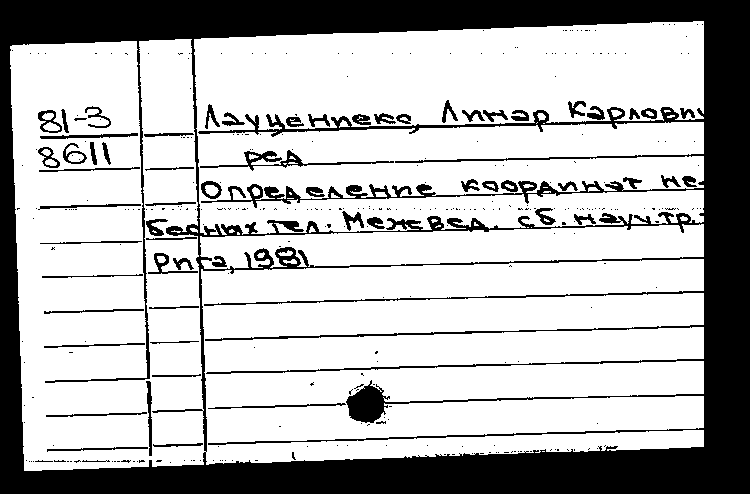 81-3 Лауцениекс, Линар Карлович
8611 ред
Определение координат не-
бесных тел: Межвед. сб. науч. тр.-
Рига, 1981.